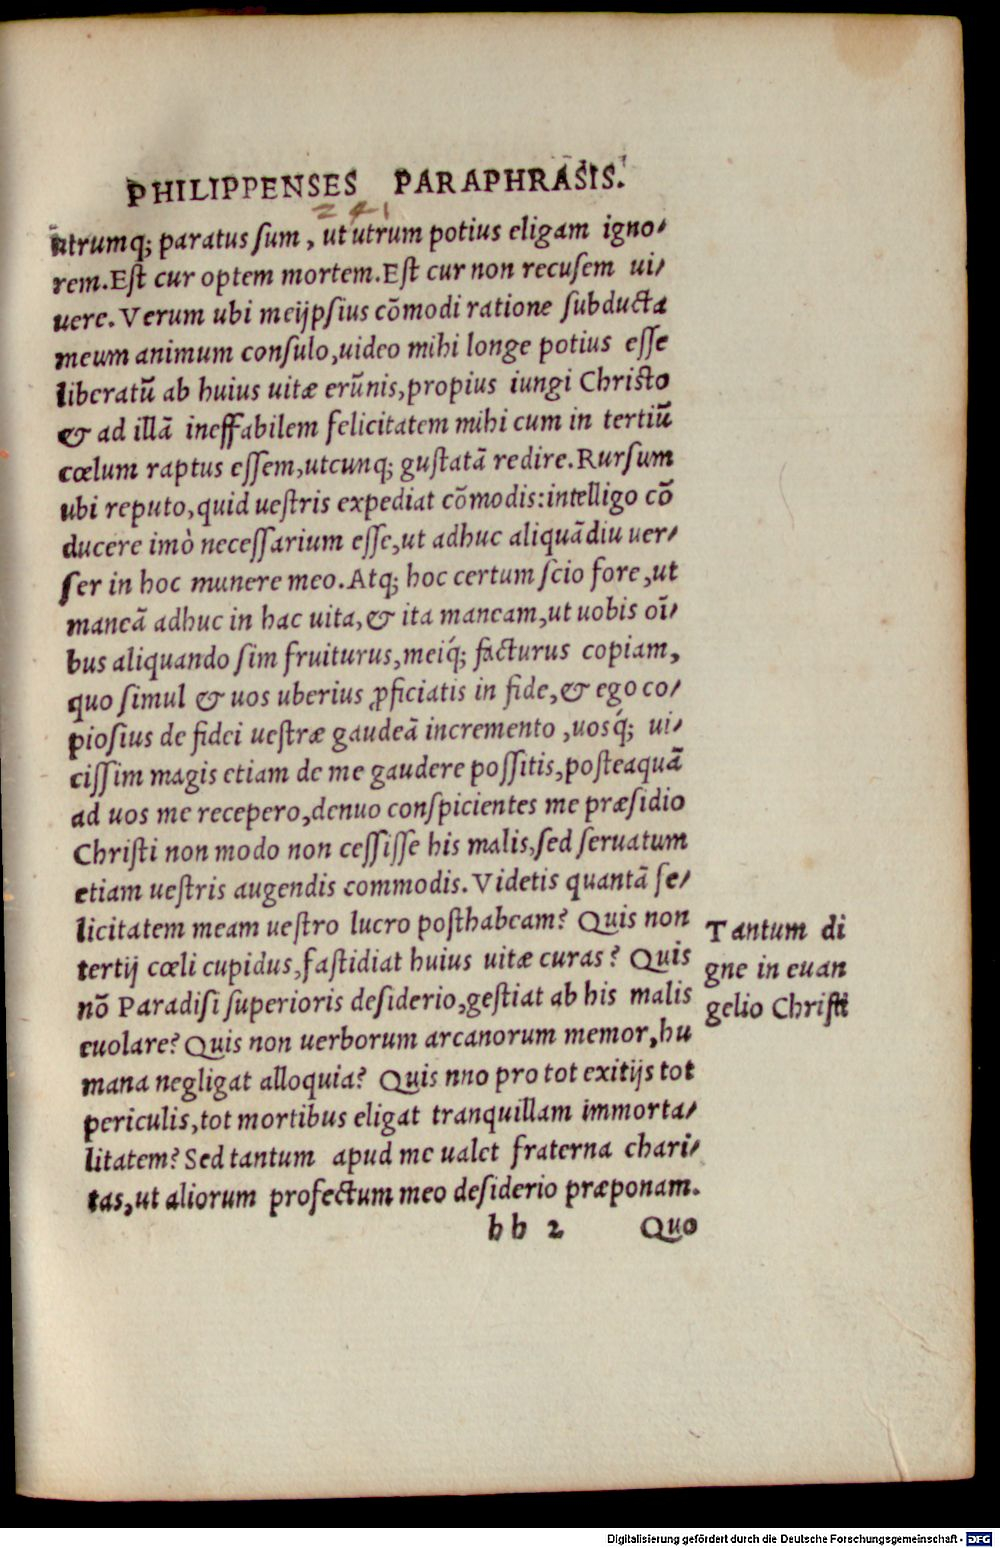 PHILIPPENSES PARAPHRASIS.
241
utrumq; paratus sum, ut utrum potius eligam igno-
rem. Est cur optem mortem. Est cur non recusem ui-
uere. Verum ubi meijpsius cõmodi ratione subducta
meum animum consulo, uideo mihi longe potius esse
liberatũ ab huius uitæ erũnis, propius iungi Christo
& ad illã ineffabilem felicitatem mihi cum in tertiũ
cœlum raptus essem, utcunq; gustatã redire. Rursum
ubi reputo, quid uestris expediat cõmodis: intelligo cõ
ducere imò necessarium esse, ut adhuc aliquãdiu uer-
ser in hoc munere meo. Atq; hoc certum scio fore, ut
maneã adhuc in hac uita, & ita maneam, ut uobis oĩ-
bus aliquando sim fruiturus, meiq́; facturus copiam,
quo simul & uos uberius ꝓficiatis in fide, & ego co-
piosius de fidei uestræ gaudeã incremento, uosq́; ui-
cissim magis etiam de me gaudere possitis, posteaquã
ad uos me recepero, denuo conspicientes me præsidio
Christi non modo non cessisse his malis, sed seruatum
etiam uestris augendis commodis. Videtis quantã fe-
licitatem meam uestro lucro posthabeam? Quis non
tertij cœli cupidus, fastidiat huius uitæ curas? Quis
nõ Paradisi superioris desiderio, gestiat ab his malis
euolare? Quis non uerborum arcanorum memor, hu
mana negligat alloquia? Quis nno pro tot exitijs tot
periculis, tot mortibus eligat tranquillam immorta-
litatem? Sed tantum apud me ualet fraterna chari-
tas, ut aliorum profectum meo desiderio præponam.
bb 2 Quo
Tantum di
gne in euan
gelio Christi
Digitalisierung gefördert durch die Deutsche Forschungsgemeinschaft - DFG